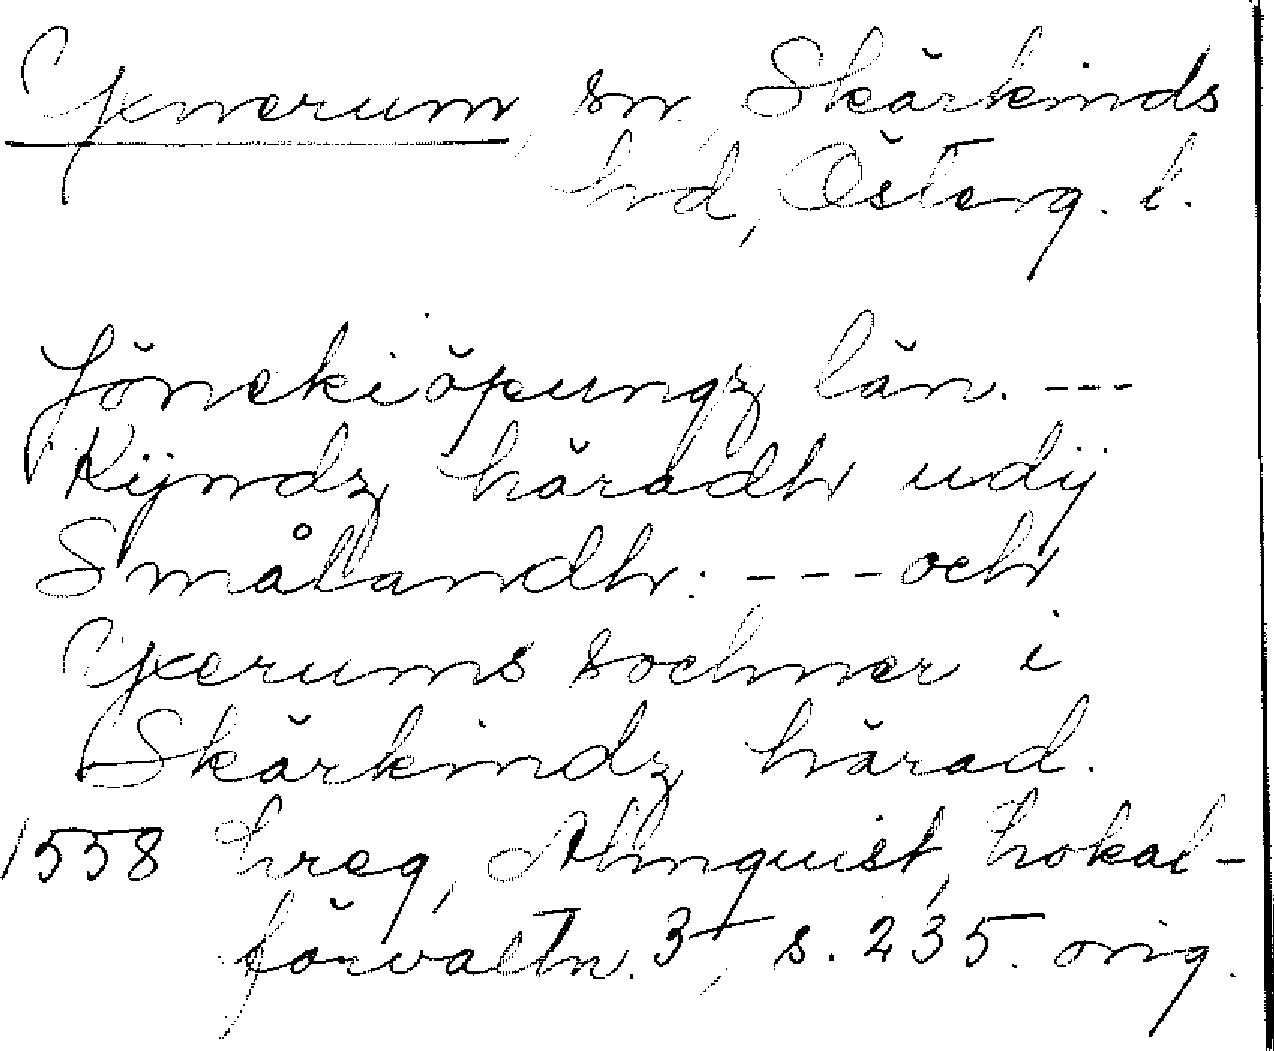 Yxnerum, sn, Skärkinds
hd, Österg. l.
Jönekiöpungz län. ---
Kijndz häradh udij
Smålandh: --- och
Yxerums sochner i
Skärkindz härad.
1558 hreg, Almquist, Lokal-
förvaltn. 3, s. 235. orig.